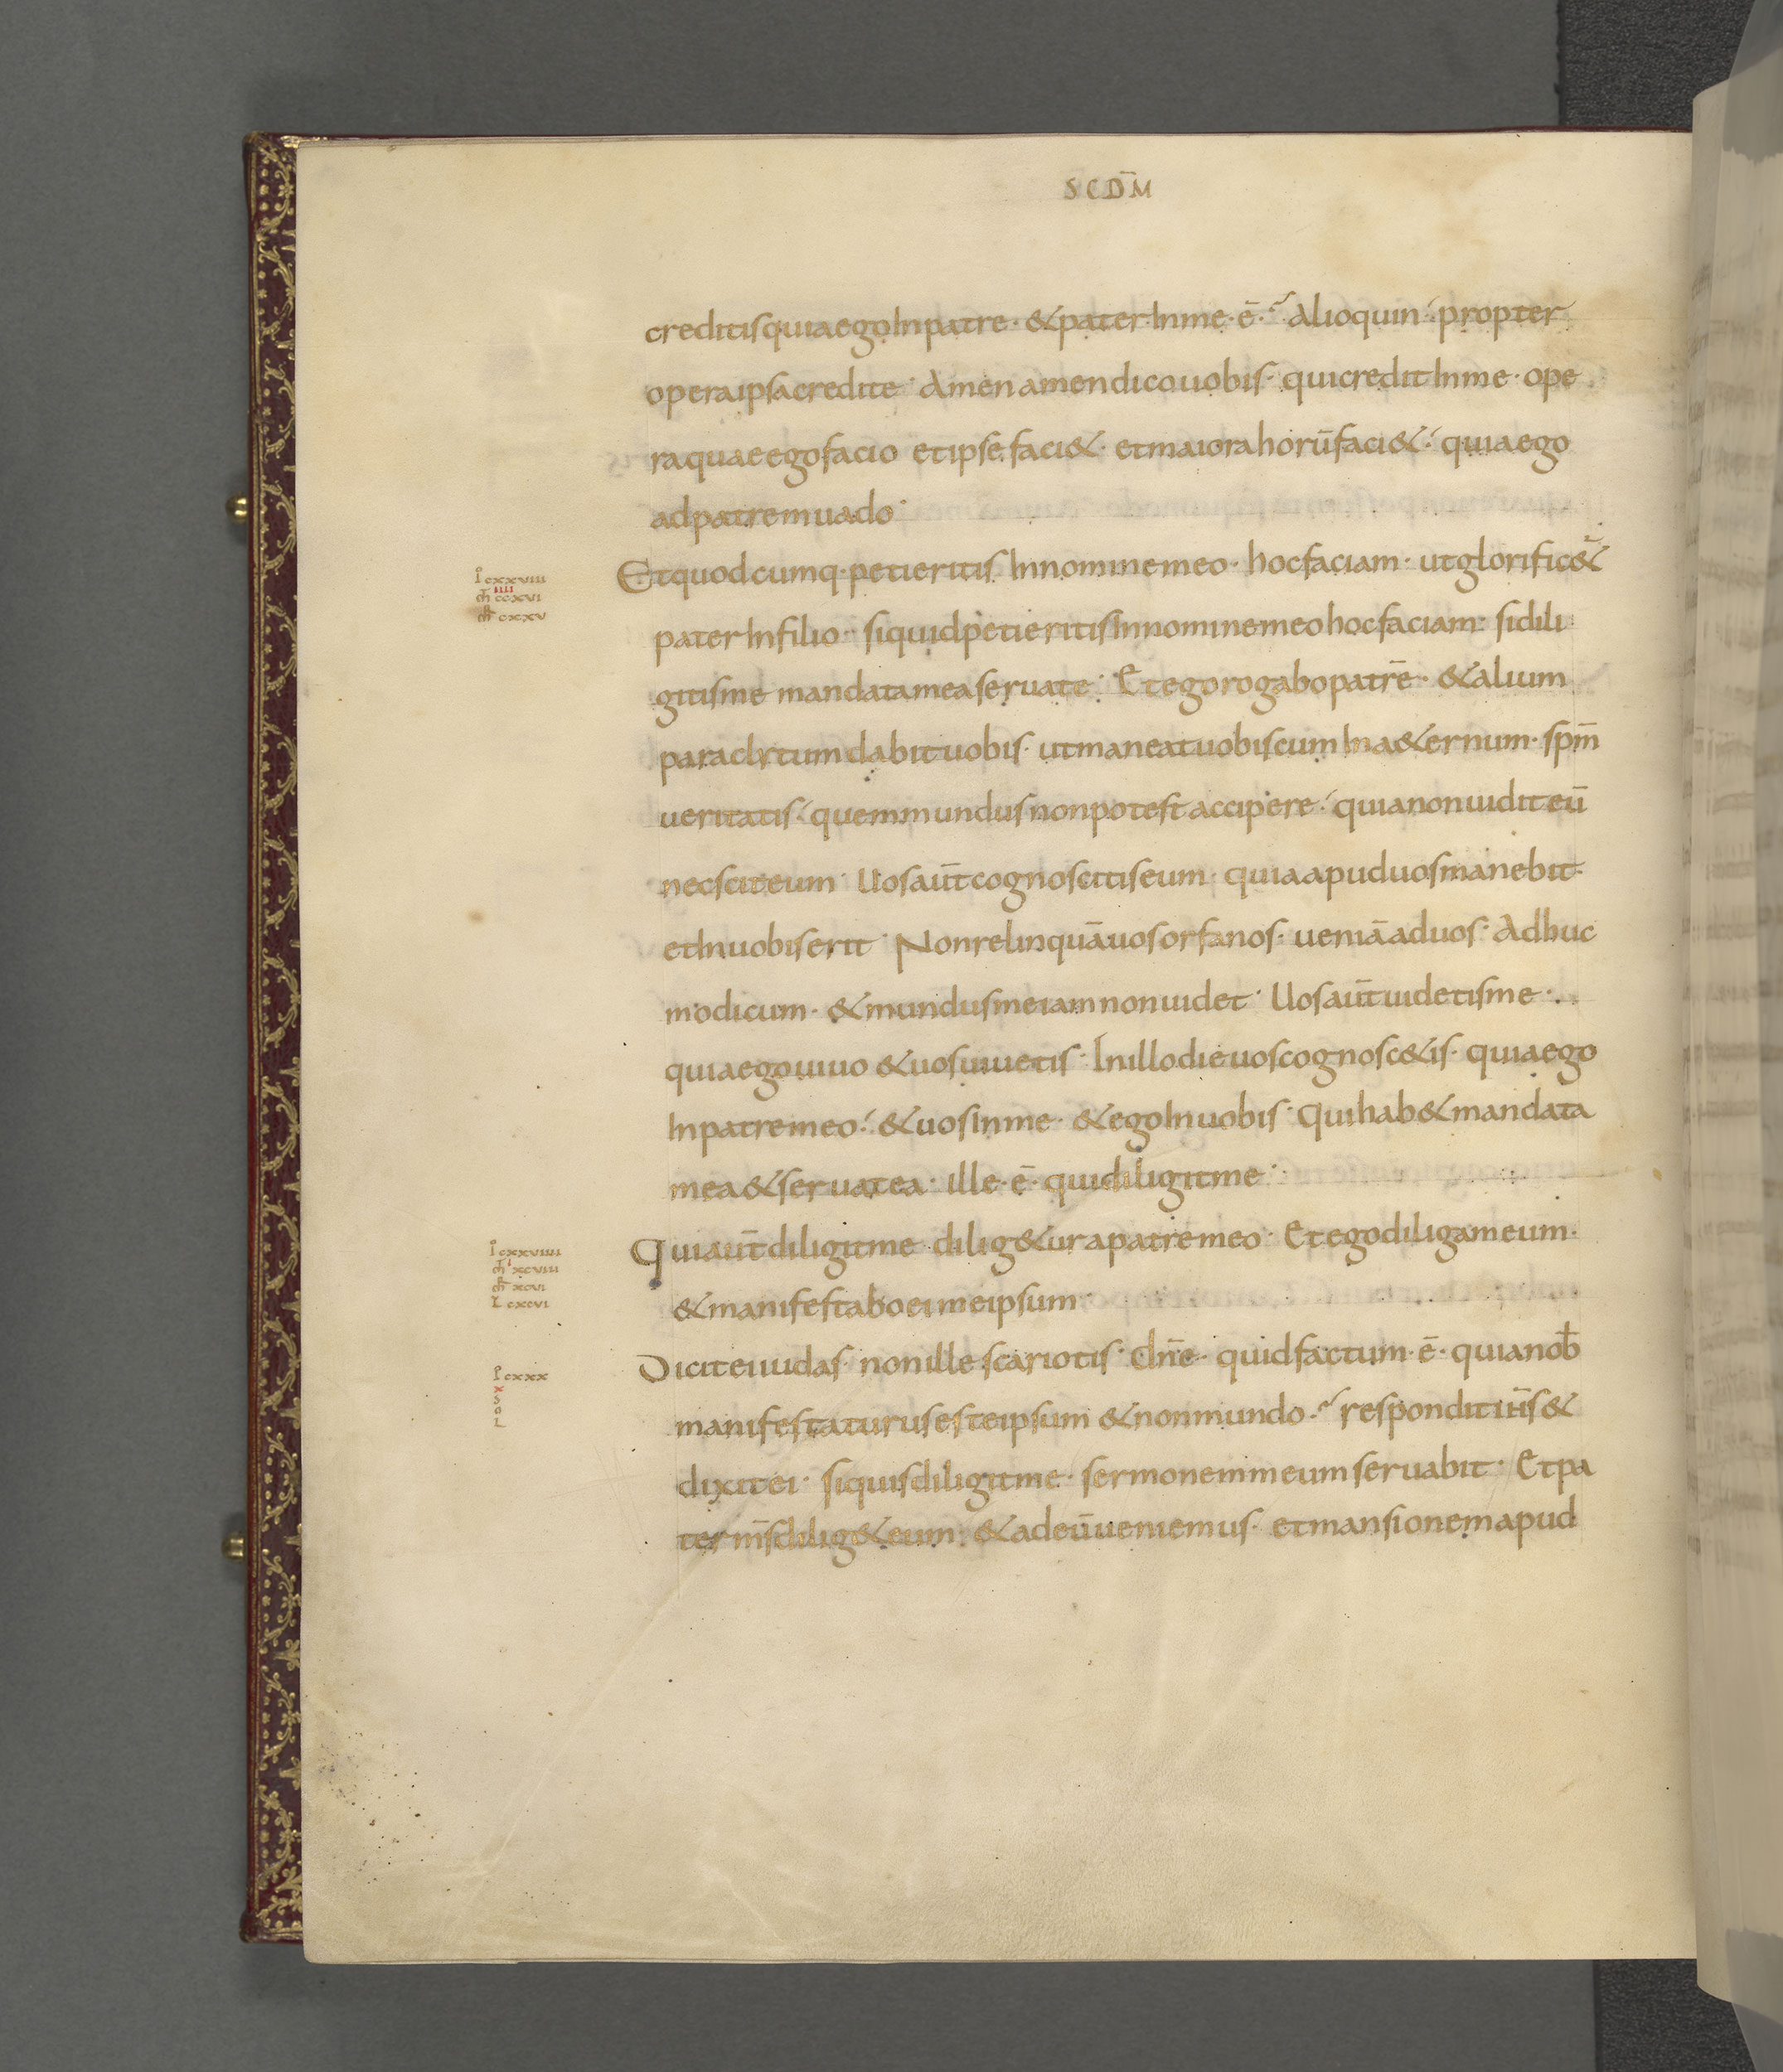 SCDM̄
creditis quia ego In patre · & pater In me · ē · Alioquin propter
opera ipsa credite · Amen amen dico uobis · qui credit In me · ope
ra quae ego facio et ipse faci& · et maiora horū faci& · quia ego
ad patrem uado ·
Et quodcumq· petieritis In nomine meo · hoc faciam · ut glorific&
pater In filio · si quid petieritis In nomine meo hoc faciam · si dili
gitis me mandata mea seruate · Et ego rogabo patrē · & alium
paraclytum dabit uobis · ut maneat uobiscum In a&ernum · spm̄
ueritatis · quem mundus non potest accipere · quia non uidit eū
nec scit eum · Uos aūt cognoscitis eum · quia apud uos manebit ·
et In uobis erit · Non relinquā uos orfanos · ueniā ad uos · Adhuc
modicum · & mundus me iam non uidet · Uos aūt uidetis me ·
quia ego uiuo & uos uiuetis · In illo die uos cognosc&is · quia ego
In patre meo · & uos in me · & ego In uobis · Qui hab& mandata
mea & seruat ea · ille · ē · qui diligit me ·
Qui aūt diligit me dilig&ur a patre meo · Et ego diligam eum ·
& manifestabo ei meipsum ·
Dicit ei iudas · non ille scariotis · dn̄e · quid factum · ē · quia nob̄
manifestaturus es teipsum & non mundo · respondit ih̄s &
dixit ei · si quis diligit me · sermonem meum seruabit · Et pa
ter m̄s dilig& eum · & ad eū ueniemus · et mansionem apud
I cxxviii
iiii
ccxvi
cxxv
I cxxviiii
i
xcviii
xcvi
L cxcvi
I cxxx
x
S
O
L